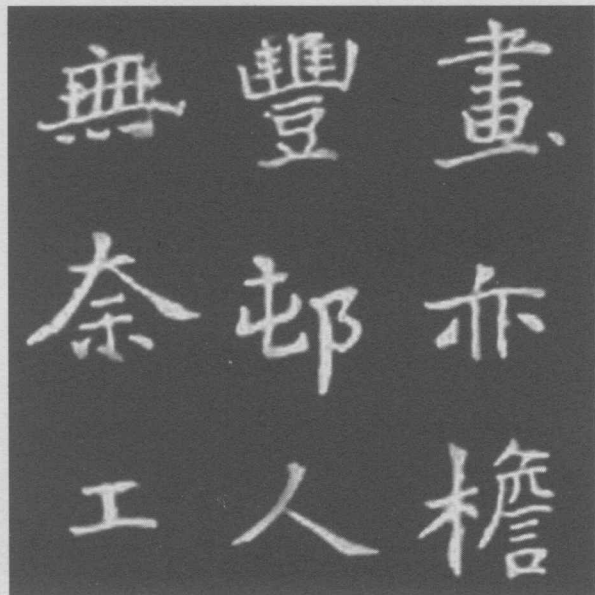 畫亦檐
豐邨人
無奈工